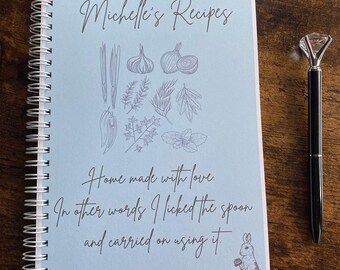 Michelle's Recipes
Home made with love.
In other words I licked the spoon
and carried on using it